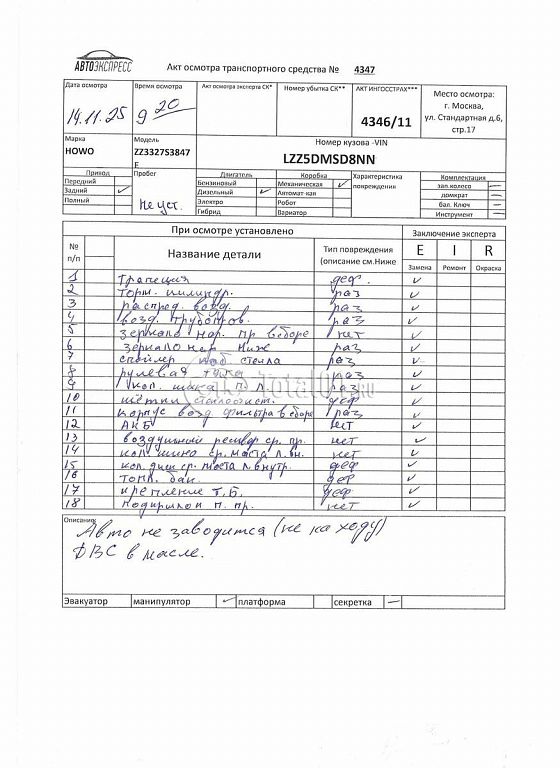 АВТОЭКСПРЕСС
Акт осмотра транспортного средства № 4347
Дата осмотра Время осмотра Акт осмотра эксперта СК* Номер убытка СК** АКТ ИНГОССТРАХ*** Место осмотра:
14.11.25 9 20 4346/11 г. Москва,
ул. Стандартная д.6,
стр.17
Марка Модель Номер кузова -VIN
HOWO ZZ3327S3847 LZZ5DMSD8NN
E
Привод Пробег Двигатель Коробка Характеристика повреждения Комплектация
Передний Бензиновый Механическая ✓ зап.колесо —
Задний ✓ Дизельный ✓ Автомат-кая домкрат —
Полный Не уст. Электро Робот бал. Ключ —
Гибрид Вариатор Инструмент —
При осмотре установлено Заключение эксперта
№ п/п Название детали Тип повреждения (описание см.Ниже E I R
Замена Ремонт Окраска
1 Трапеция деф. ✓
2 Торм. цилиндр. раз ✓
3 распред. возд. раз ✓
4 возд. трубопров. раз ✓
5 зеркало нар. пр в сборе нет ✓
6 зеркало нар. ниж раз ✓
7 спойлер под стекла раз ✓
8 рулевая тяга раз ✓
9 кол. шина п. л. раз ✓
10 щётки стеклоочист. деф ✓
11 корпус возд. фильтра в сборе раз ✓
12 АКБ нет ✓
13 воздушный ресивер ср. пр. нет ✓
14 кол. шина ср. моста л. вн. нет ✓
15 кол. диск ср. моста л внутр. деф ✓
16 топл. бак. деф ✓
17 крепление Т.Б. деф ✓
18 подкрылок п. пр. нет ✓
Описание
Авто не заводится (не на ходу)
ДВС в масле.
Эвакуатор манипулятор ✓ платформа секретка —